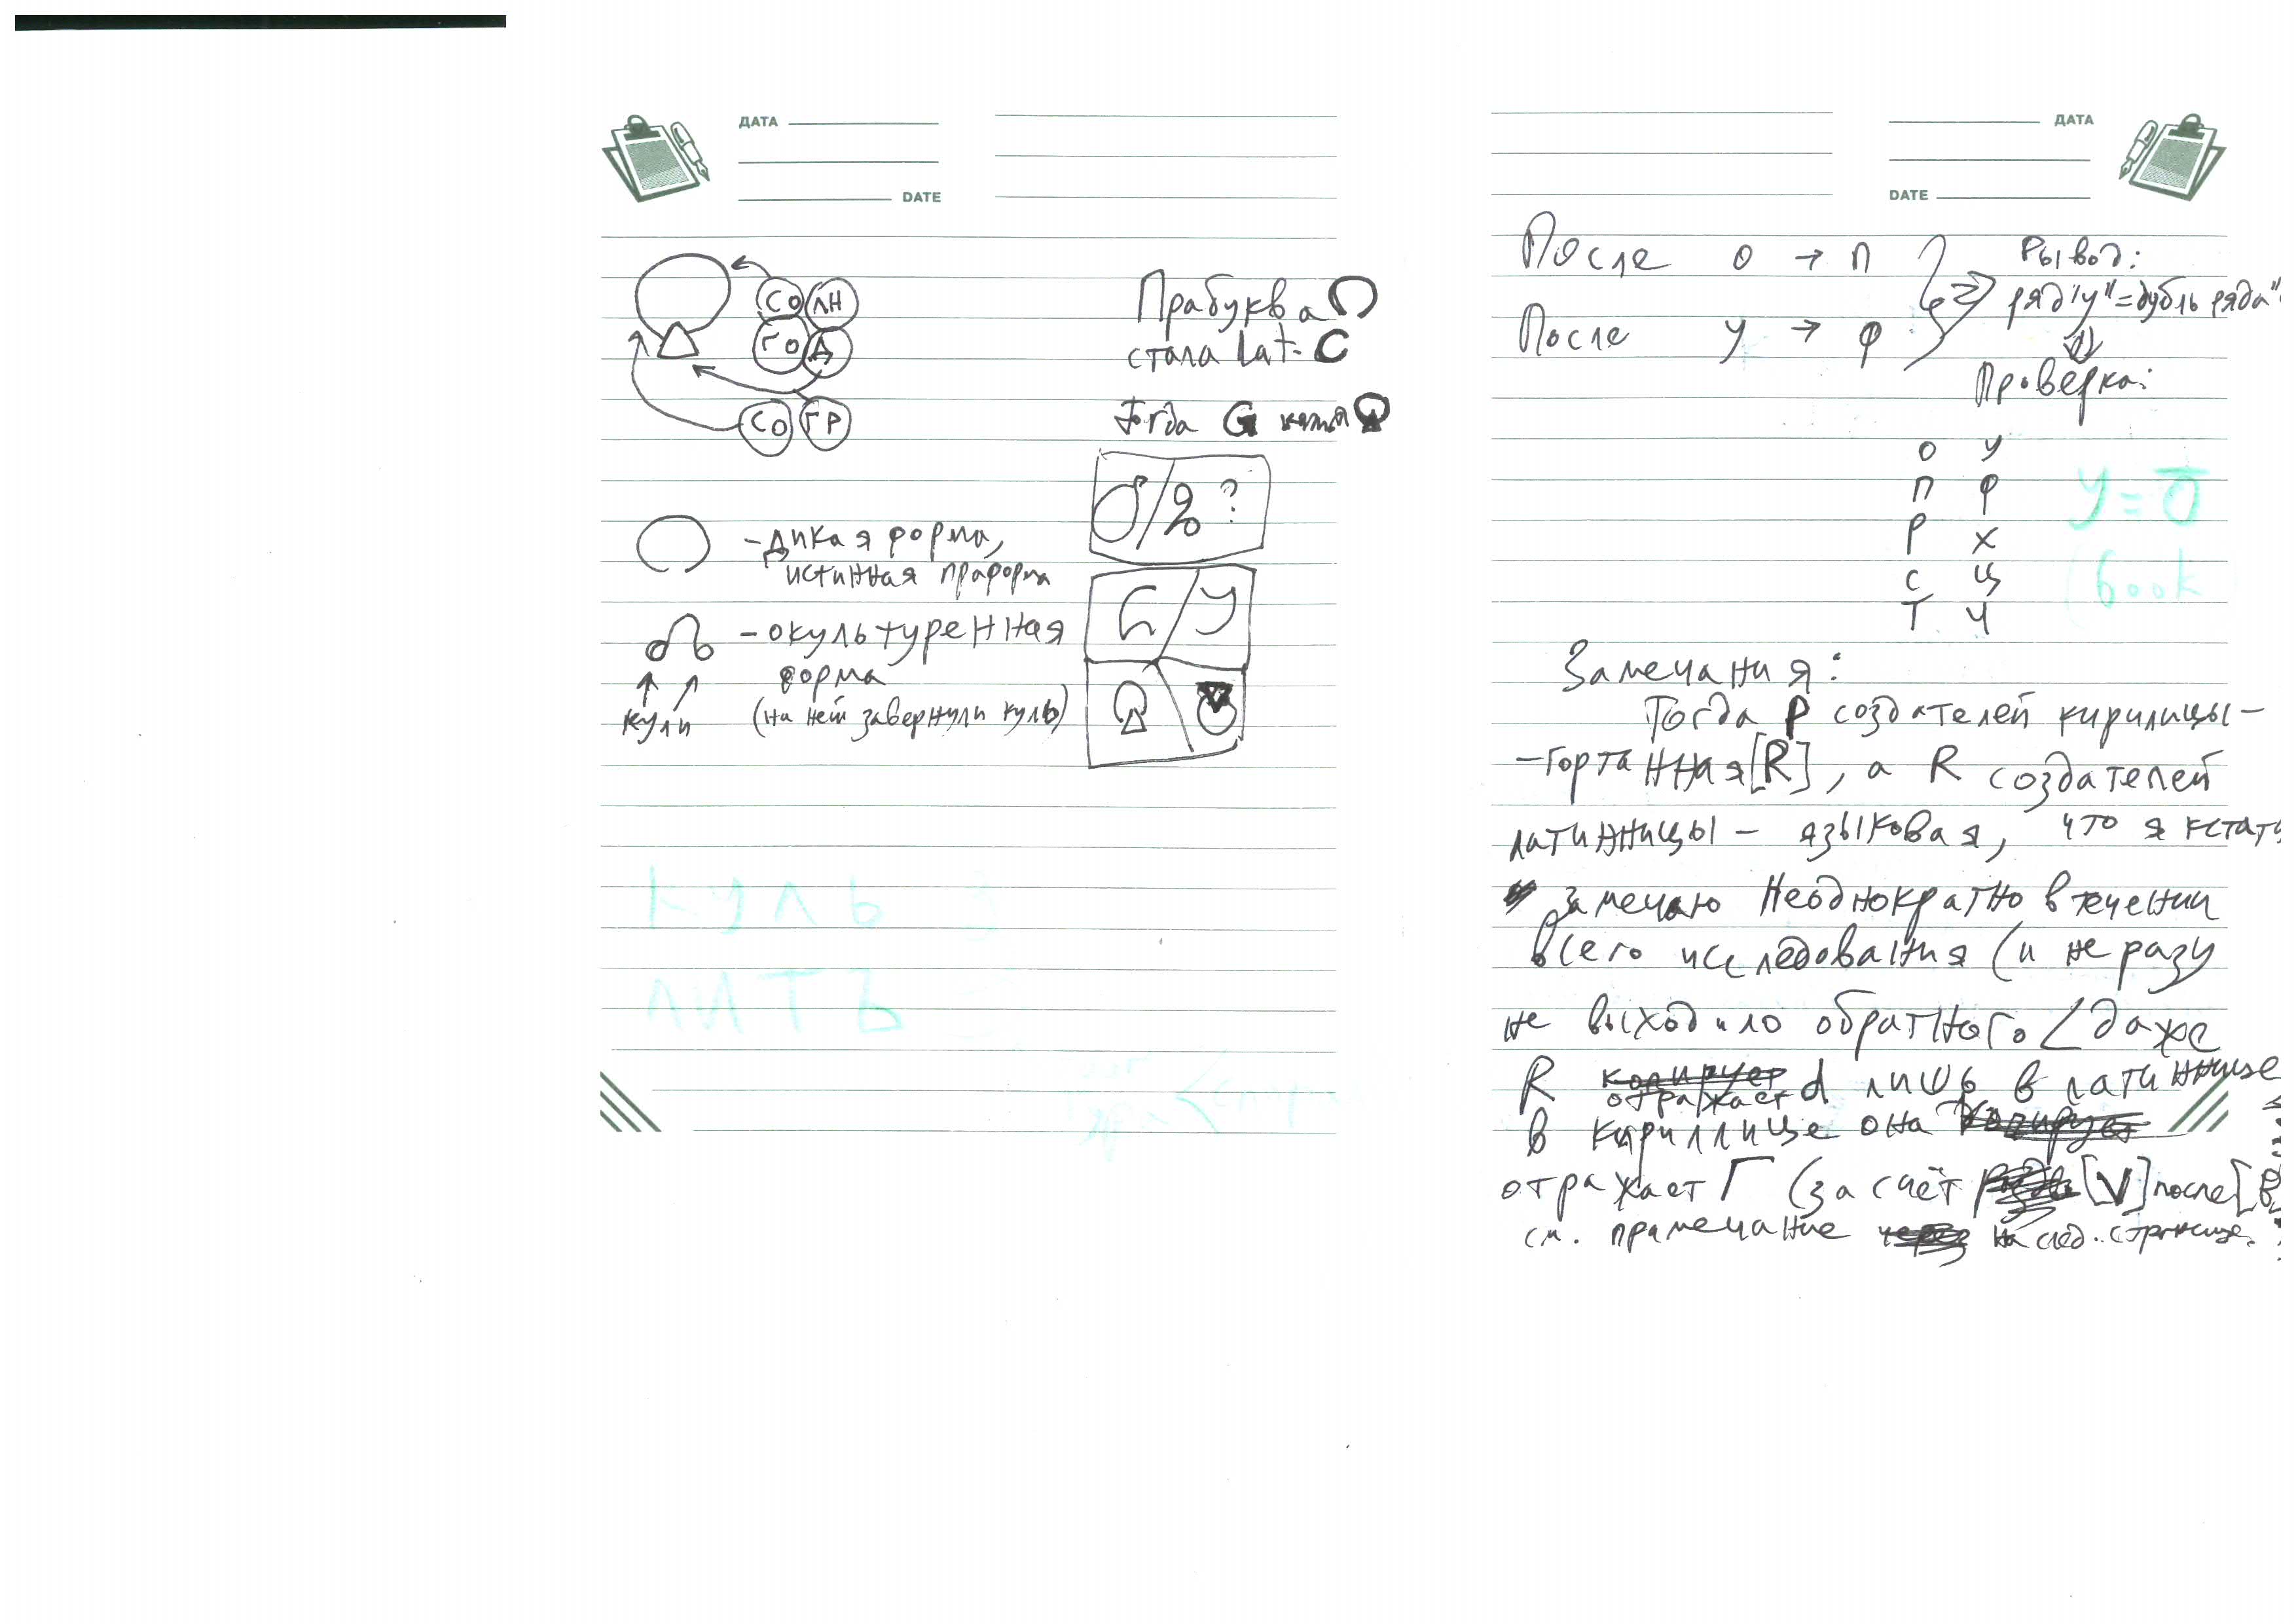 ДАТА
DATE
СО ЛН
ГО Д
СО ГР
Прабуква
стала Lat. C
Тогда G
- дикая форма,
истинная праформа
- окультуренная
форма
кули
(на ней завернули куль)
?
С / У
КУЛЬ
ЛИТЬ
ДАТА
DATE
После о → п
После у → ф
Вывод:
ряд "у" = дубль ряда "
Проверка:
о у
п ф
р х
с ц
т ч
У = O
book
Замечания:
Тогда Р создателей кирилицы -
- гортанная [R], а R создателей
латинницы - языковая, что я кстати
замечаю неоднократно в течении
всего исследования (и не разу
не выходило обратного < даже
R отражает d лишь в латиннице
в кириллице она
отражает Г (за счёт [V] после [
см. примечание на след. странице.